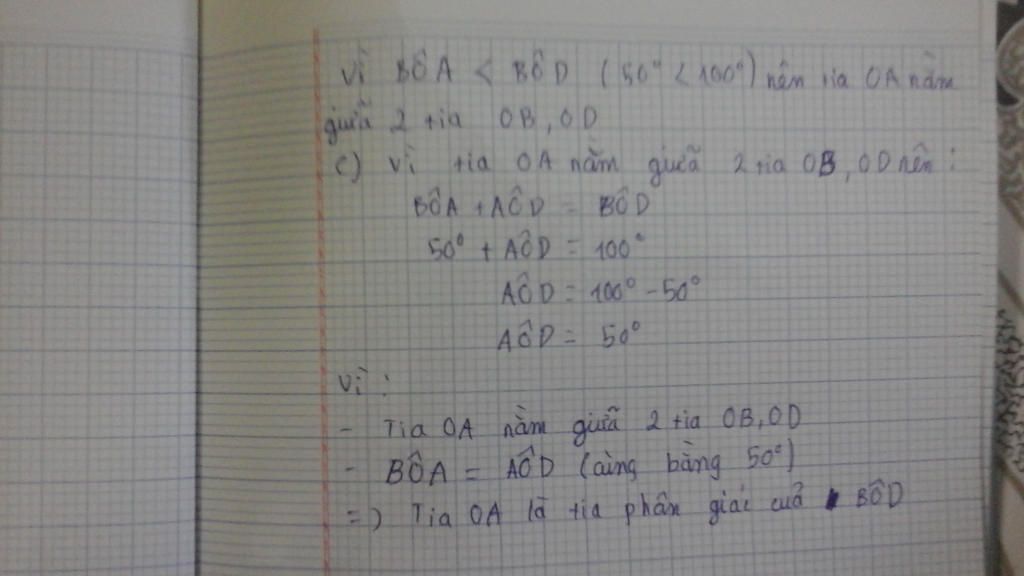 Vì BÔA < BÔD (50° < 100°) nên tia OA nằm
giữa 2 tia OB, OD
c) Vì tia OA nằm giữa 2 tia OB, OD nên :
BÔA + AÔD = BÔD
50° + AÔD = 100°
AÔD = 100° - 50°
AÔD = 50°
Vì :
- Tia OA nằm giữa 2 tia OB, OD
- BÔA = AÔD (cùng bằng 50°)
=) Tia OA là tia phân giác cuả BÔD